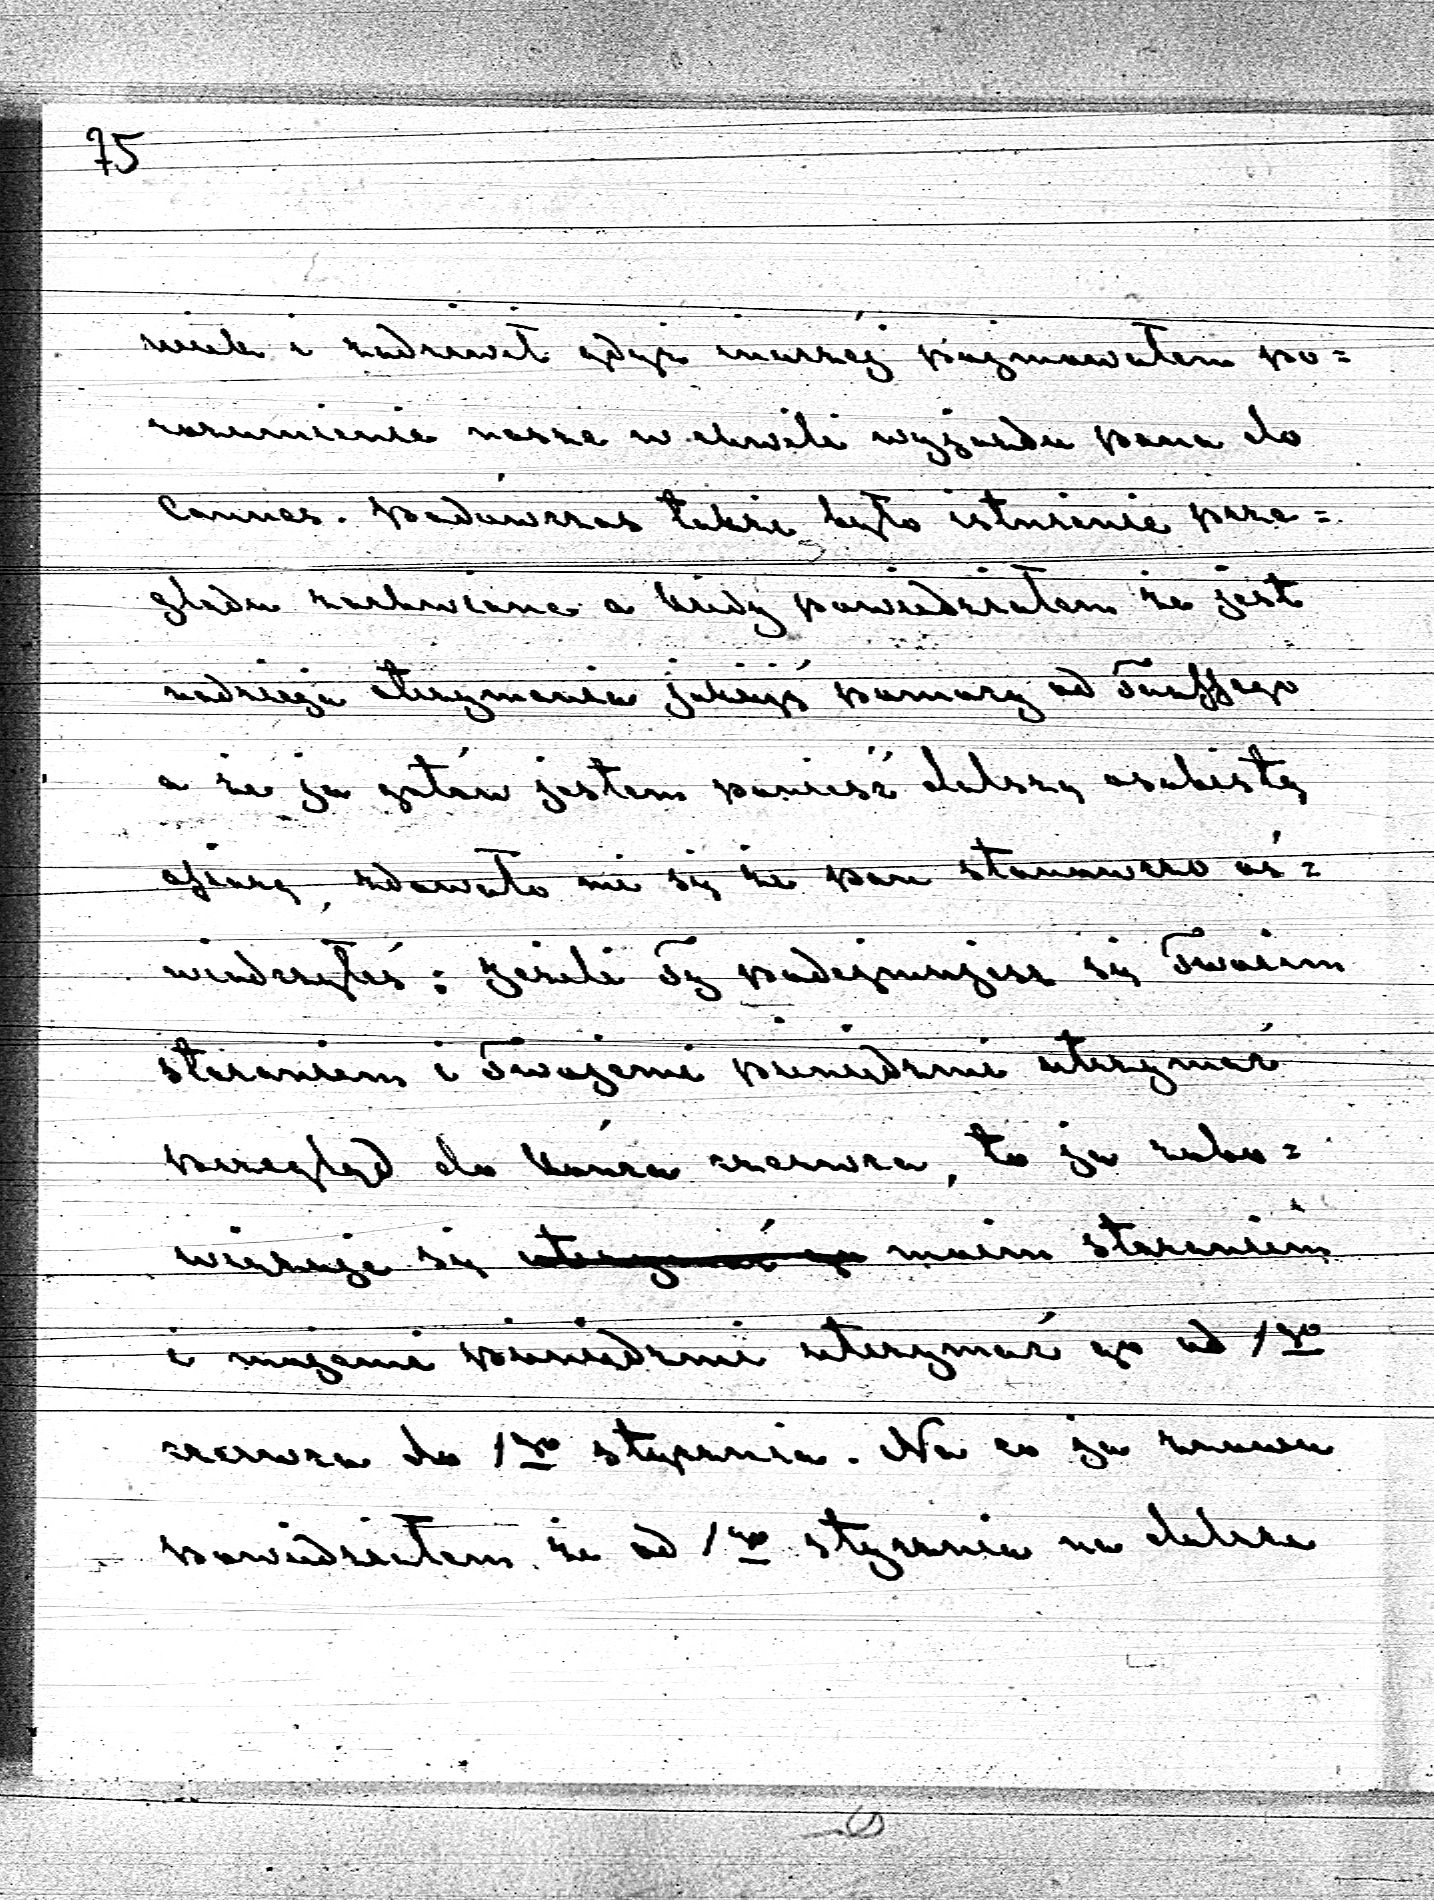 75
niak i zadziwił gdyż inaczéj pojmowałem po=
rozumienie nasze w chwili wyjazdu pana do
Cannes. Podówczas także było istnienie prze=
glądu zachwiane a kiedy powiedziałem że jest
nadzieja otrzymania jakiejś pomocy od
a że ja gotów jestem ponieść dalszą osobistą
ofiarę, zdawało mi się że pan stanowczo oś=
wiadczyłeś: Jeżeli Ty podejmujesz się Twoim
staraniem i Twojemi pieniędzmi utrzymać
przegląd do końca czerwca, to ja zobo=
wiązuje się utrzymać go moim staraniem
i mojemi pieniędzmi utrzymać go od 1go
czerwca do 1go stycznia. Na co ja znowu
powiedziałem że od 1go stycznia na dalsze